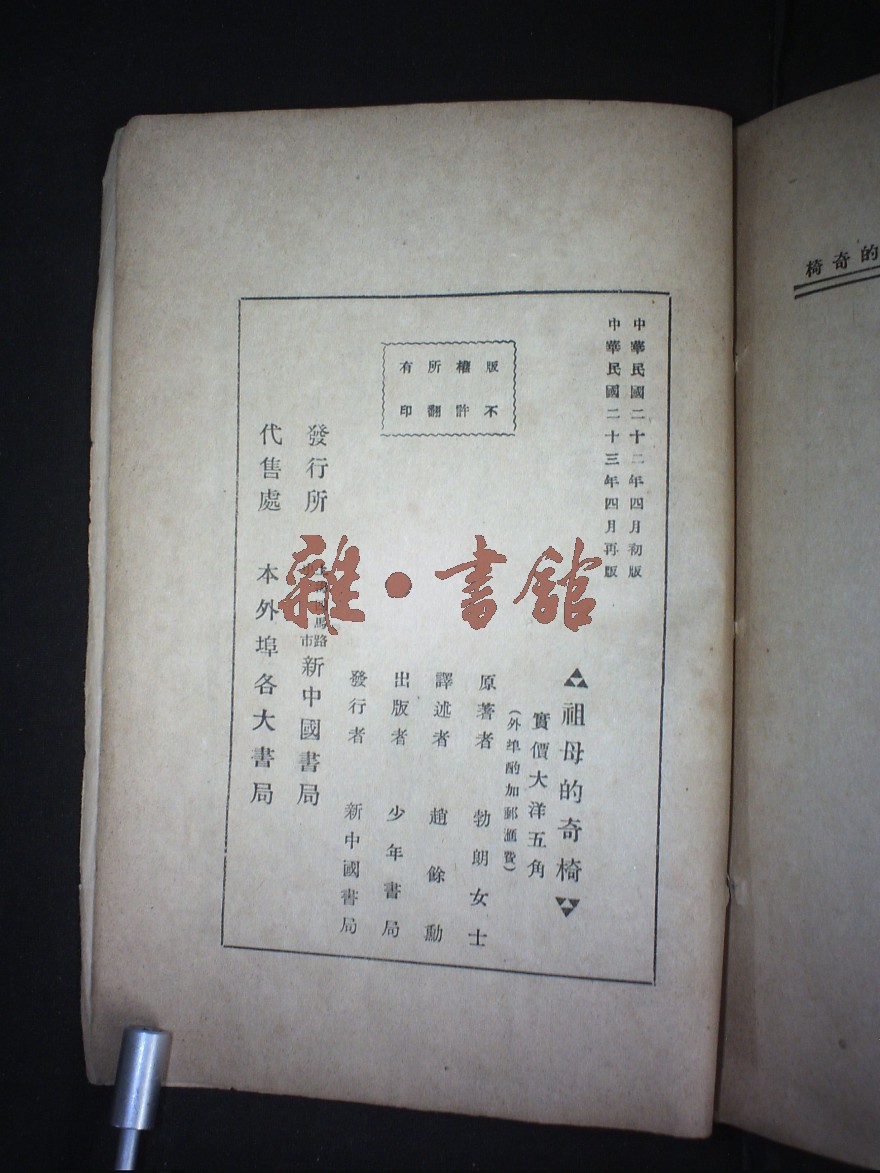 的奇椅
中華民國二十二年四月初版
中華民國二十三年四月再版
版權所有
不許翻印
祖母的奇椅
實價大洋五角
(外埠酌加郵滙費)
原著者 勃朗女士
譯述者 趙餘勳
出版者 少年書局
發行者 新中國書局
發行所 馬路 市 新中國書局
代售處 本外埠各大書局
雜·書館